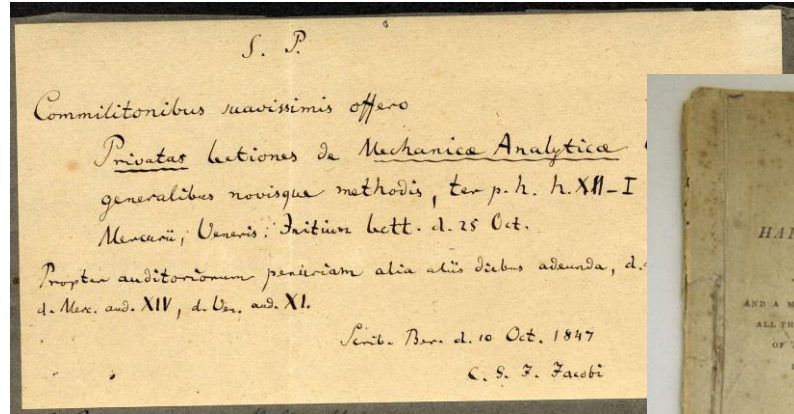 S. P.
Commilitonibus suavissimis offero
Privatas lectiones de Mechanicæ Analyticæ
generalibus novisque methodis, ter p. h. h. XII–I
Mercurii, Veneris. Initium lectt. d. 25 Oct.
Propter auditoriorum penuriam alia aliis diebus adeunda, d.
d. Merc. aud. XIV, d. Ven. aud. XI.
Scrib. Ber. d. 10 Oct. 1847
C. G. J. Jacobi
HA
AND A M
ALL TH
OF